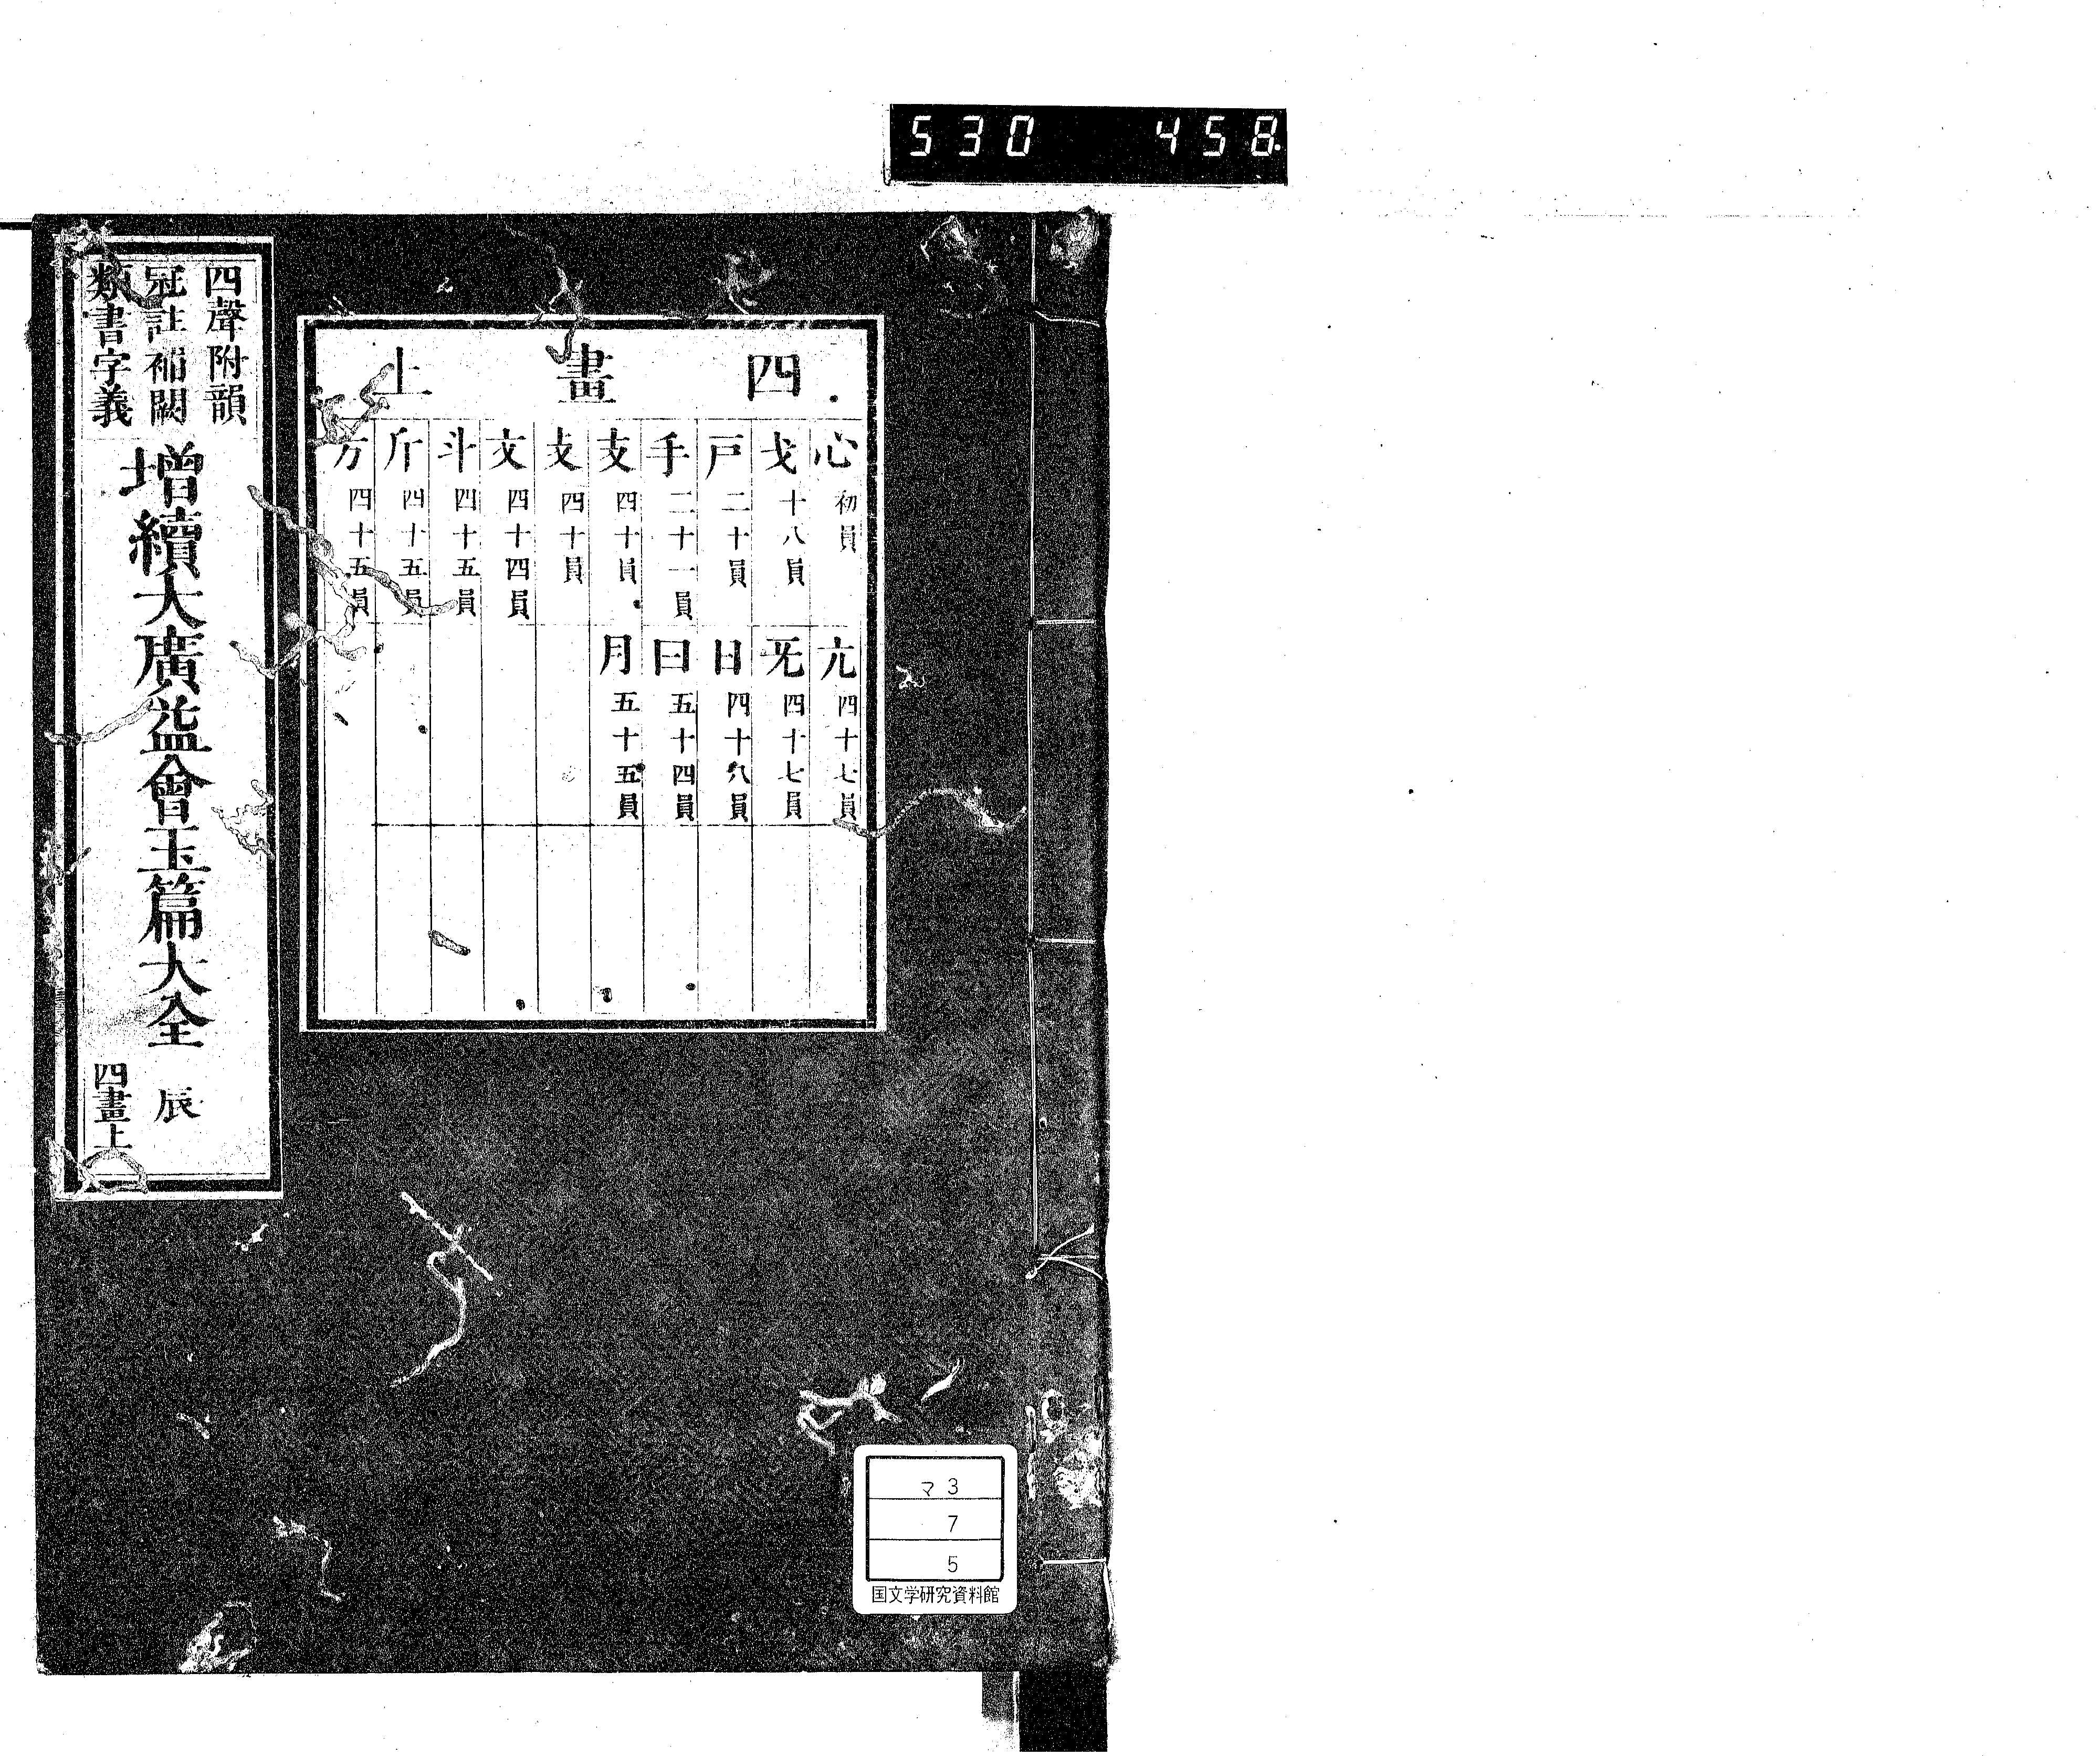 530 458
四畫上
心 初員
戈 十八員
戶 二十員
手 二十一員
支 四十員
攴 四十員
文 四十四員
斗 四十五員
斤 四十五員
方 四十五員
亢 四十七員
旡 四十七員
日 四十八員
曰 五十四員
月 五十五員
四聲附韻
冠註補闕
類書字義
增續大廣益會玉篇大全 辰
四畫上
マ3
7
5
国文学研究資料館